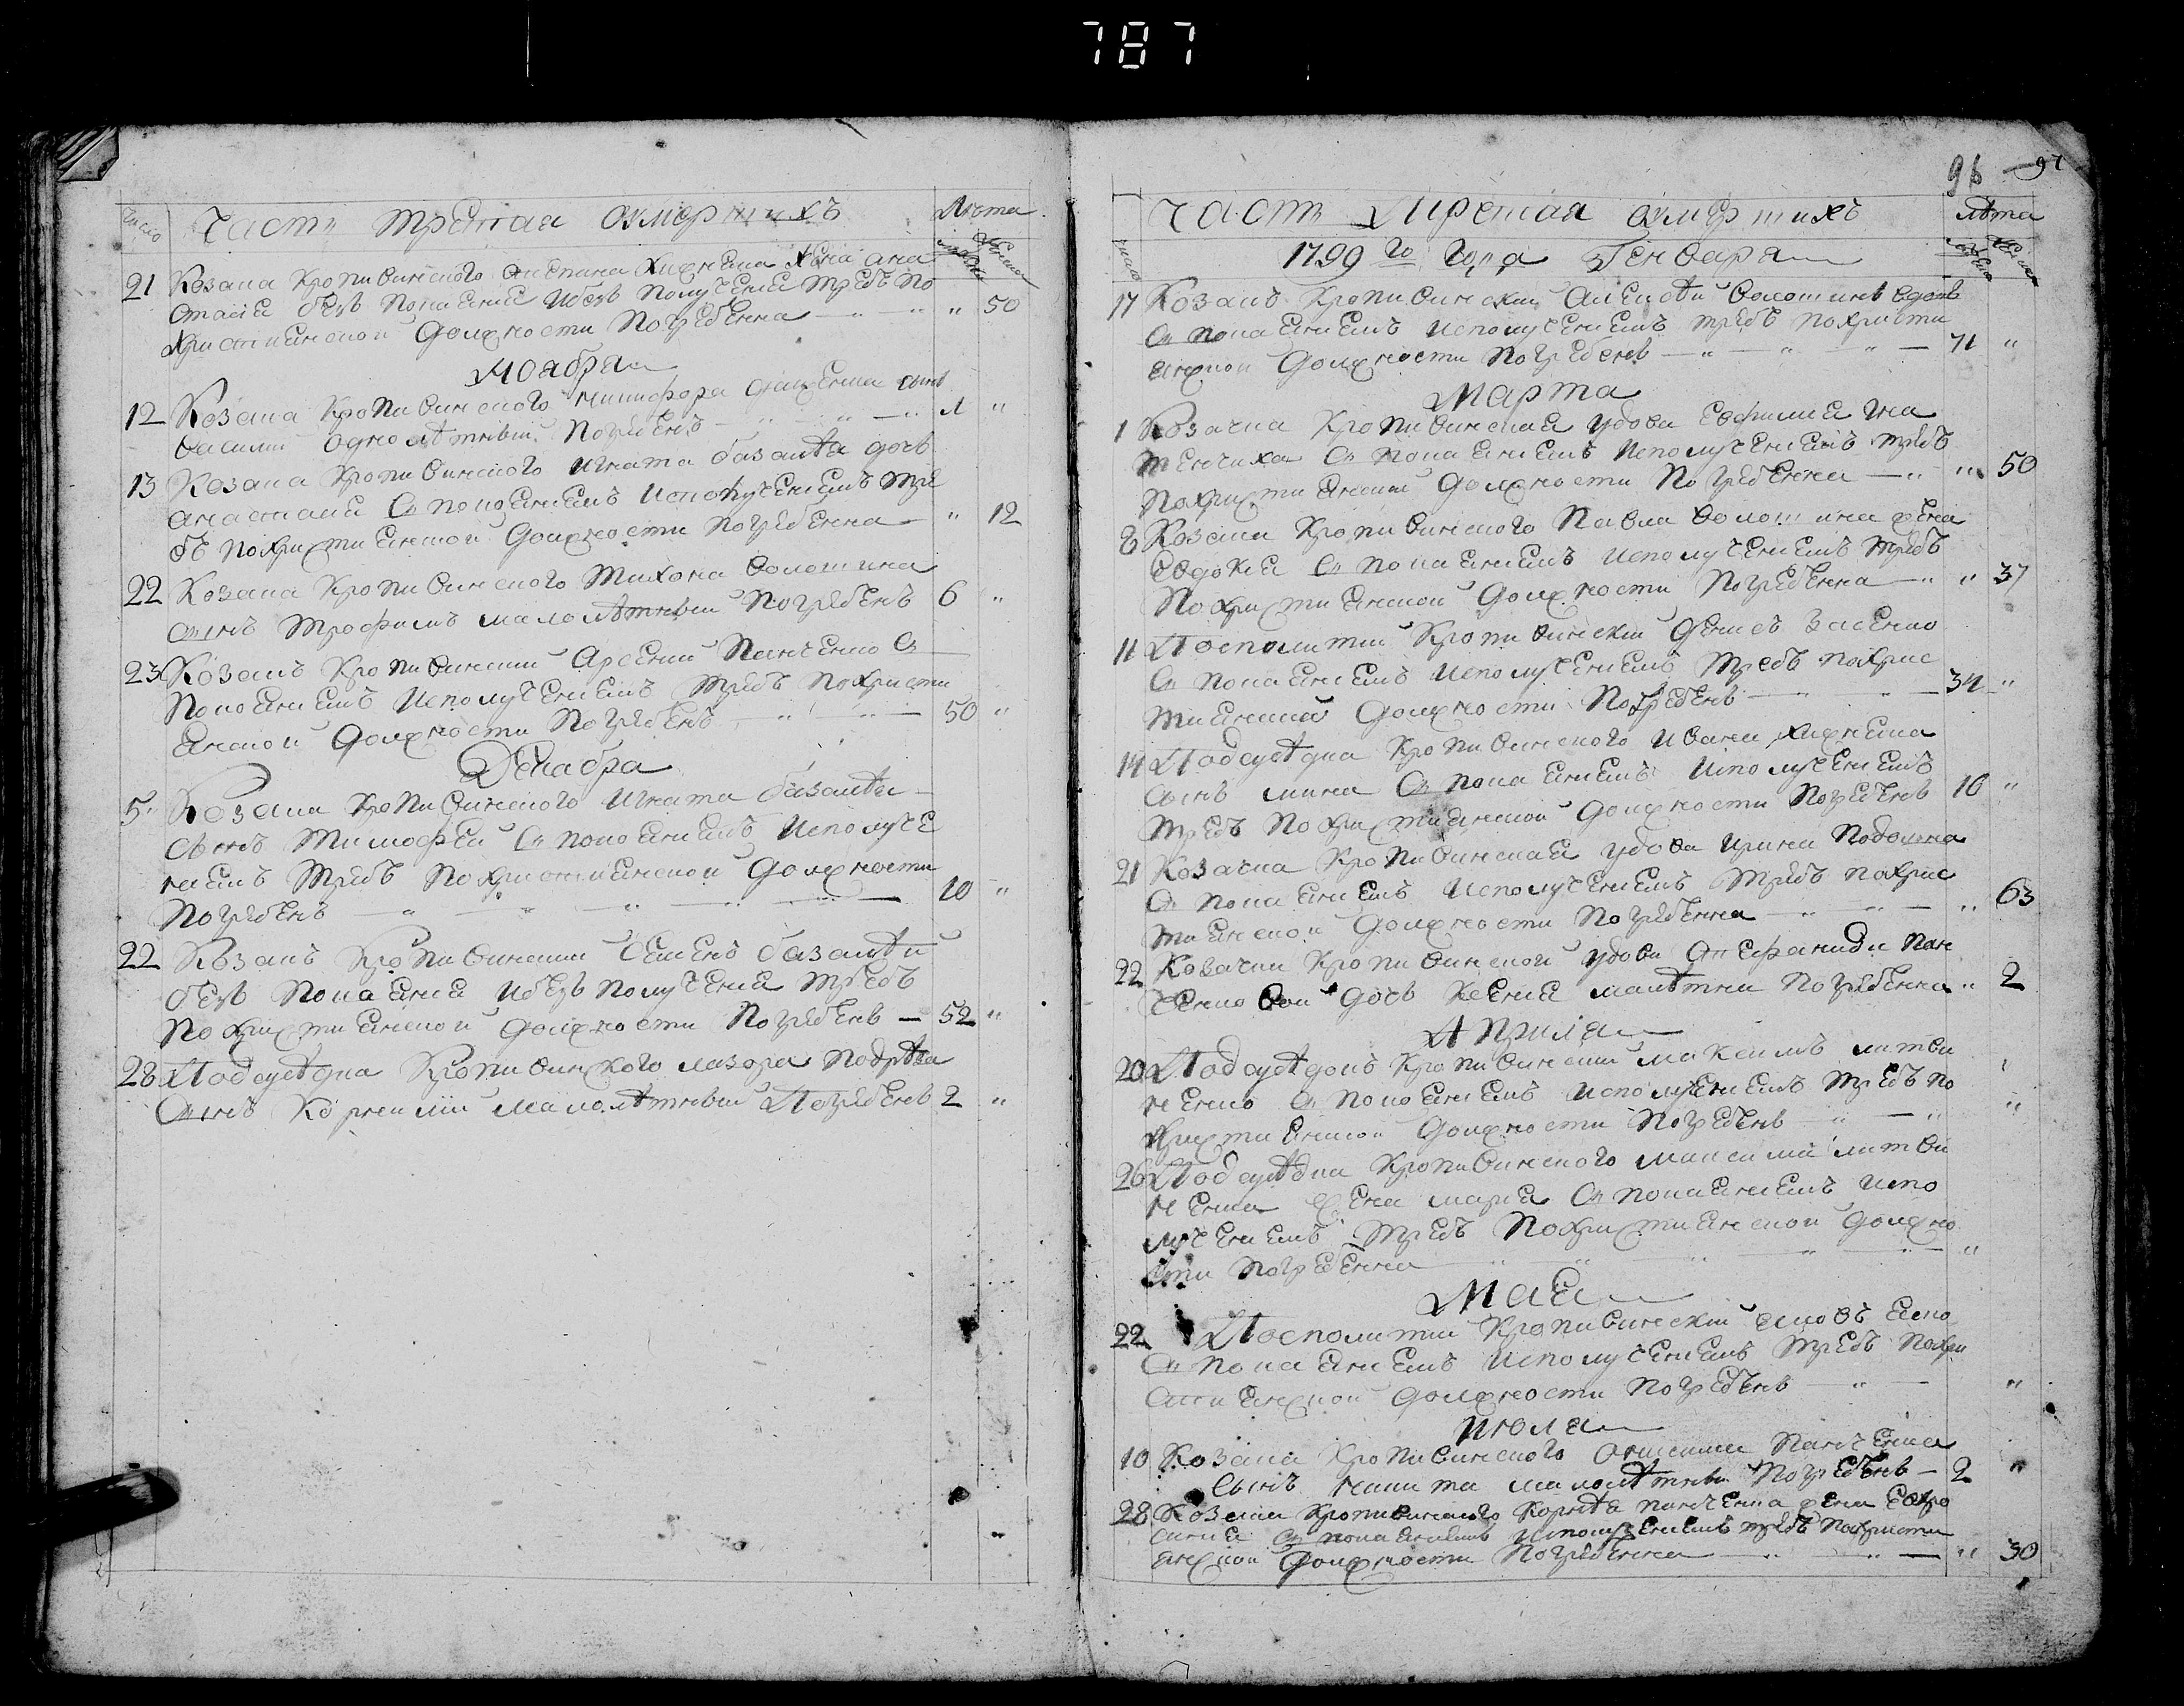 787
число Часть третая ωумершихъ Лѣта
21 Козака Кропивинского Жена Ана
стасіе безъ покаенія ибезъ полученіе требъ по
христіанской должности погребенна 50
Ноабра
12 Козака Кропивинского Никифора сынъ
Василій однолѣтный погребенъ 1
13 Козака Кропивинского Игната базалѣя дочь
Анастасіе Съ покаеніемъ исполученіемъ тре
бъ похристианской должности погребенна 12
22 Козака Кропивинского Тихона Волошина
сынъ Трофимъ малолѣтный погребенъ 6
23 Козакъ Кропивинскій Арсеній Панченко Съ
покаеніемъ исполученіемъ требъ похристи
анской должности погребенъ 50
Декабра
5 Козака Кропивинского Игната базалѣя
сынъ Тимофей Съ покаеніемъ исполуче
ніемъ требъ похристианской должности
погребенъ 10
22 Козакъ Кропивинскій Семенъ базалѣй
безъ покаенія ибезъ полученія требъ
похристианской должности погребенъ 52
28 Подсусѣдка Кропивинского лазора
Сынъ Корнилій малолѣтный Погребенъ 2
96 97
Часть третая ωумершихъ лѣта
число 1799 го Года Генвара
17 Козакъ Кропивинскій Алексѣй Волошинъ вдовъ
Съ покаеніемъ исполученіемъ требъ похристи
анской должности погребенъ 71
Марта
1 Козачка Кропивинскаа удова Евфимиа Гна
тенчиха Съ покаеніемъ исполученіемъ требъ
похристианской должности погребенна 50
8 Козака Кропивинского Павла Волошина жена
Евдокиа Съ покаеніемъ исполученіемъ требъ
похристианской должности погребенна 37
11 Посполитий Кропивинскій Денисъ Засенко
Съ покаеніемъ исполученіемъ требъ похрис
тианской должности погребенъ 34
14 Подсусѣдка Кропивинского Ивана
сынъ мина Съ покаеніемъ исполученіемъ
требъ похристианской должности погребенъ 16
21 Козачка Кропивинскаа удова Ирина
Съ покаеніемъ исполученіемъ требъ похрис
тианской должности погребенна 63
22 Козачки Кропивинской удови Стефаниди Пан
ченковой дочь Ксеніа малѣтна погребенна 2
Априлa
20 Подсусѣдокъ Кропивинскій Максимъ литви
ненко Съ покаеніемъ исполученіемъ требъ по
христианской должности погребенъ
26 Подсусѣдка Кропивинского Максима литви
ненка жена мариа Съ покаеніемъ испо
лученіемъ требъ похристианской должно
сти погребенна
Маа
22 Посполитий Кропивинскій
Съ покаеніемъ исполученіемъ требъ похри
стианской должности погребенъ
Июла
10 Козака Кропивинского Панченка
сынъ никита малолѣтный погребенъ 2
28 Козака Кропивинского Корнѣа панченка жена Евфро
синіа Съ покаеніемъ исполученіемъ требъ похристи
анской должности погребенна 30